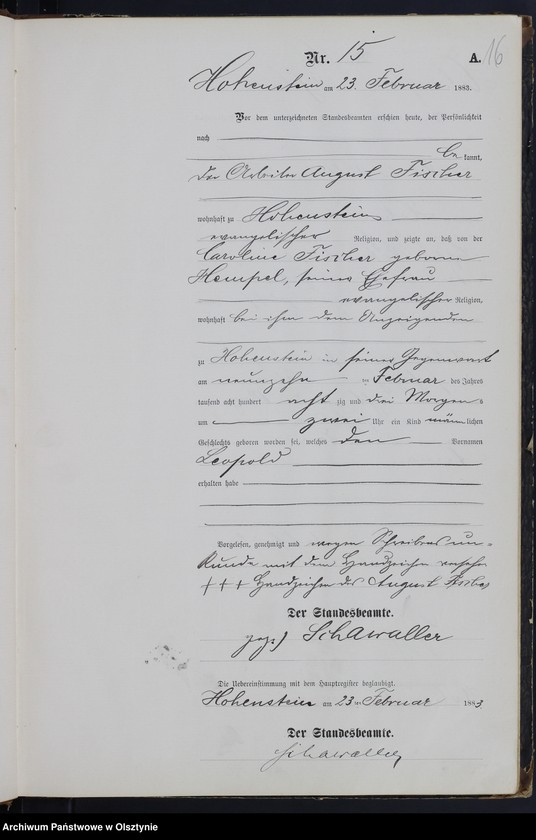 Nr. 15 A. 16
Hohenstein am 23. Februar 1883.
Vor dem unterzeichneten Standesbeamten erschien heute, der Persönlichkeit
nach
be kannt,
der Arbeiter August Fischer
wohnhaft zu Hohenstein
evangelischer Religion, und zeigte an, daß von der
Caroline Fischer geborene
Hempel, seiner Ehefrau
evangelischer Religion,
wohnhaft bei ihm dem Anzeigenden
zu Hohenstein in seiner Gegenwart
am neunzehn ten Februar des Jahres
tausend acht hundert acht zig und drei Morgens
um zwei Uhr ein Kind männlichen
Geschlechts geboren worden sei, welches den Vornamen
Leopold
erhalten habe
Vorgelesen, genehmigt und wegen Schreibens un-
kunde mit dem Handzeichen versehen
+++ Handzeichen des August Fischer
Der Standesbeamte.
gez:) Schawaller
Die Uebereinstimmung mit dem Hauptregister beglaubigt.
Hohenstein am 23 ten Februar 1883
Der Standesbeamte.
Schawaller
Archiwum Państwowe w Olsztynie